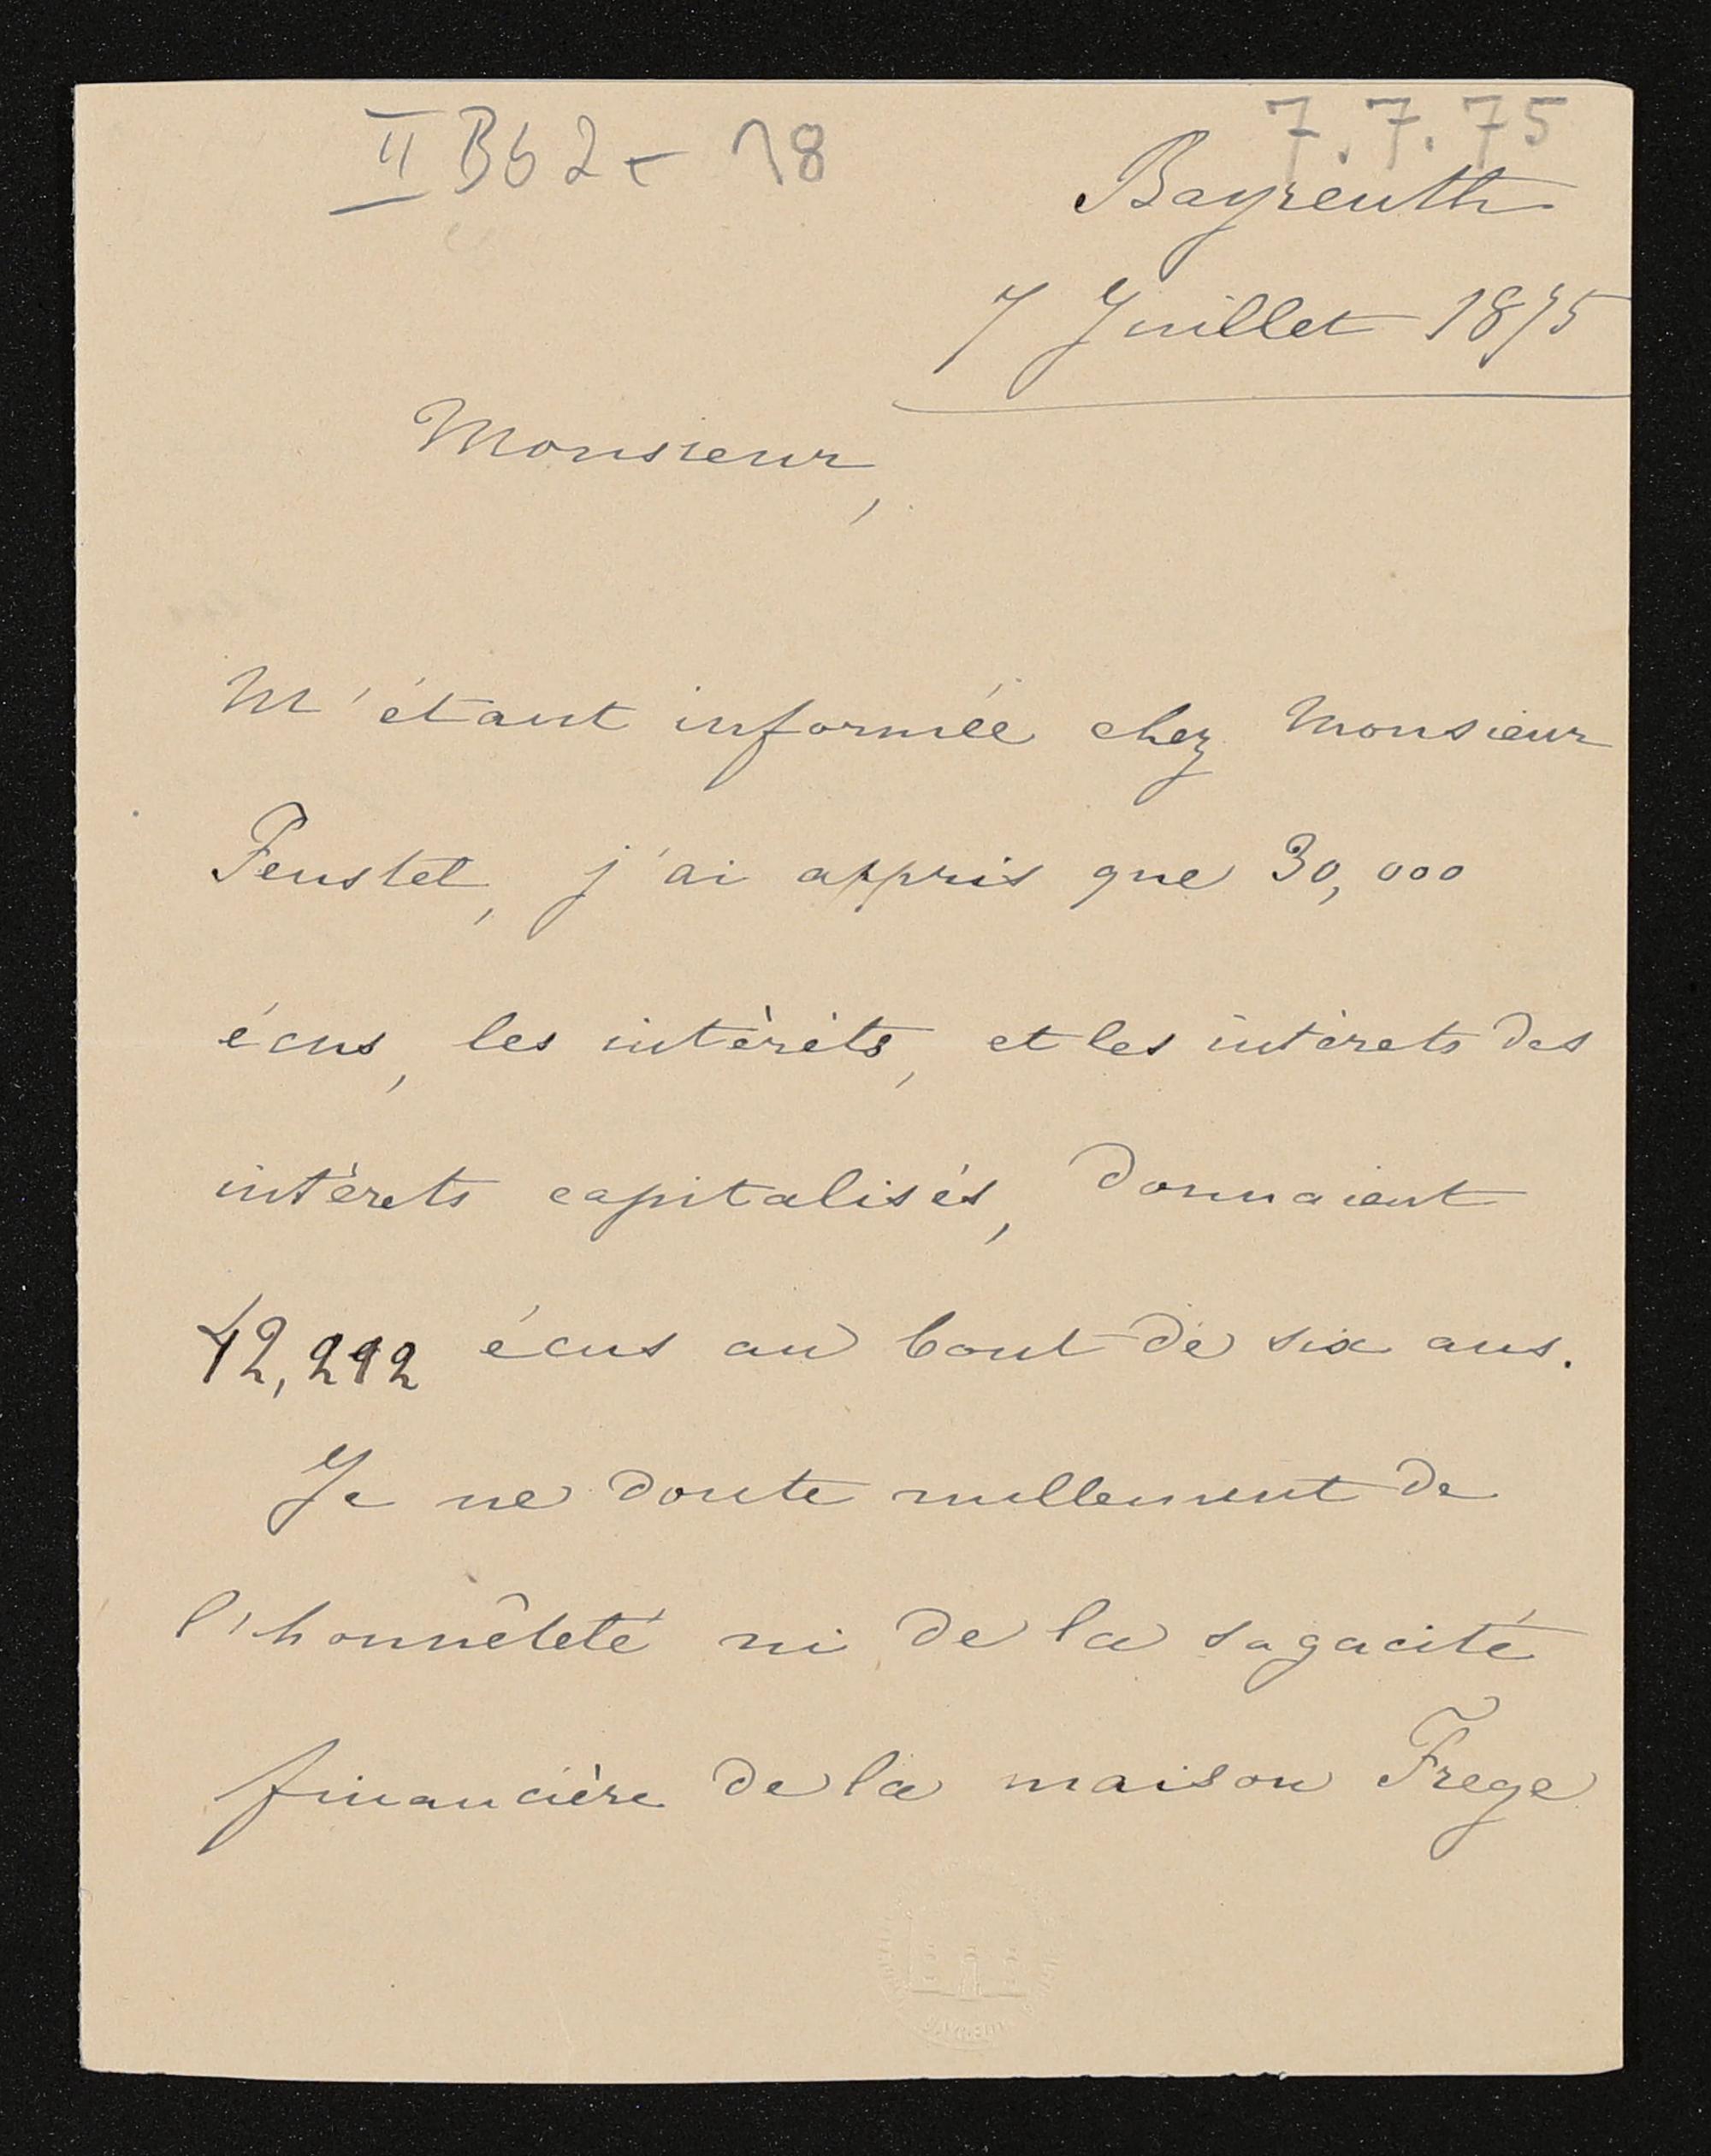 II Bb 2 - 18
7.7.75
Bayreuth
7 Juillet 1875
Monsieur,
M'étant informée chez Monsieur
Feustel, j'ai appris que 30,000
écus, les intèrèts, et les intèrets des
intèrets capitalisés, donnaient
42,292 écus au bout de six ans.
Je ne doute nullement de
l'honnêteté ni de la sagacité
financière de la maison Frege